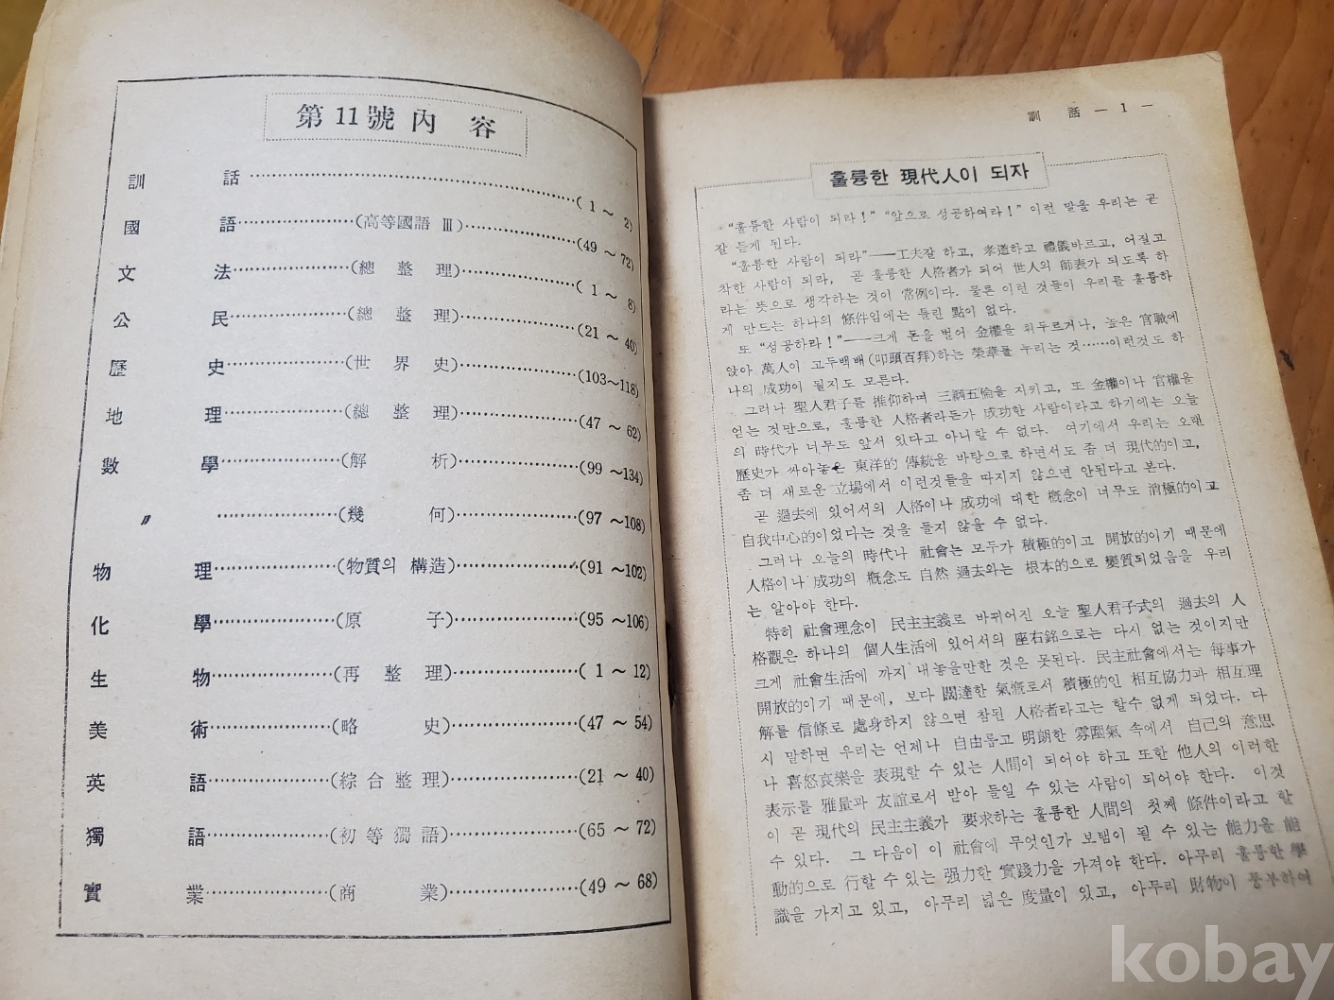 第 11 號 內 容
訓 話 ( 1 ~ 2)
國 語 (高等國語 Ⅲ) (49 ~ 72)
文 法 (總 整 理) ( 1 ~ 8)
公 民 (總 整 理) (21 ~ 40)
歷 史 (世 界 史) (103~118)
地 理 (總 整 理) (47 ~ 62)
數 學 (解 析) (99 ~134)
〃 (幾 何) (97 ~108)
物 理 (物質의 構造) (91 ~102)
化 學 (原 子) (95 ~106)
生 物 (再 整 理) ( 1 ~ 12)
美 術 (略 史) (47 ~ 54)
英 語 (綜合整理) (21 ~ 40)
獨 語 (初等獨語) (65 ~ 72)
實 業 (商 業) (49 ~ 68)
訓 話 — 1 —
훌륭한 現代人이 되자
"훌륭한 사람이 되라!" "앞으로 성공하여라!" 이런 말을 우리는 곧
잘 듣게 된다.
"훌륭한 사람이 되라"——工夫잘 하고, 孝道하고 禮儀바르고, 어질고
착한 사람이 되라, 곧 훌륭한 人格者가 되어 世人의 師表가 되도록 하
라는 뜻으로 생각하는 것이 常例이다. 물론 이런 것들이 우리를 훌륭하
게 만드는 하나의 條件임에는 틀린 點이 없다.
또 "성공하라!"——크게 돈을 벌어 金權을 휘두르거나, 높은 官職에
앉아 萬人이 고두백배(叩頭百拜)하는 榮華를 누리는 것……이런것도 하
나의 成功이 될지도 모른다.
그러나 聖人君子를 推仰하며 三綱五倫을 지키고, 또 金權이나 官權을
얻는 것만으로, 훌륭한 人格者라든가 成功한 사람이라고 하기에는 오늘
의 時代가 너무도 앞서 있다고 아니할 수 없다. 여기에서 우리는 오랜
歷史가 싸아놓은 東洋的 傳統을 바탕으로 하면서도 좀 더 現代的이고,
좀 더 새로운 立場에서 이런것들을 따지지 않으면 안된다고 본다.
곧 過去에 있어서의 人格이나 成功에 대한 槪念이 너무도 消極的이고
自我中心的이었다는 것을 들지 않을 수 없다.
그러나 오늘의 時代나 社會는 모두가 積極的이고 開放的이기 때문에
人格이나 成功의 槪念도 自然 過去와는 根本的으로 變質되었음을 우리
는 알아야 한다.
特히 社會理念이 民主主義로 바뀌어진 오늘 聖人君子式의 過去의 人
格觀은 하나의 個人生活에 있어서의 座右銘으로는 다시 없는 것이지만
크게 社會生活에 까지 내놓을만한 것은 못된다. 民主社會에서는 每事가
開放的이기 때문에, 보다 闊達한 氣慨로서 積極的인 相互協力과 相互理
解를 信條로 處身하지 않으면 참된 人格者라고는 할수 없게 되었다. 다
시 말하면 우리는 언제나 自由롭고 明朗한 雰圍氣 속에서 自己의 意思
나 喜怒哀樂을 表現할 수 있는 人間이 되어야 하고 또한 他人의 이러한
表示를 雅量과 友誼로서 받아 들일 수 있는 사람이 되어야 한다. 이것
이 곧 現代의 民主主義가 要求하는 훌륭한 人間의 첫째 條件이라고 할
수 있다. 그 다음이 이 社會에 무엇인가 보탬이 될 수 있는 能力을 能
動的으로 行할 수 있는 强力한 實踐力을 가져야 한다. 아무리 훌륭한 學
識을 가지고 있고, 아무리 넓은 度量이 있고, 아무리 財物이 풍부하여
kobay